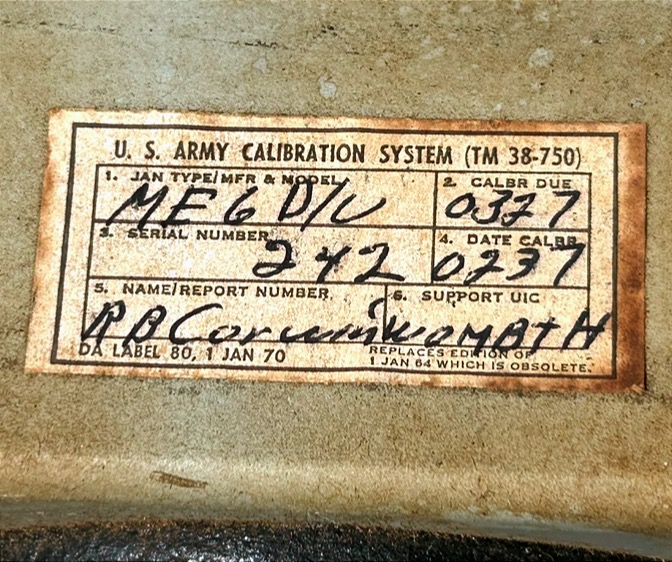 U. S. ARMY CALIBRATION SYSTEM (TM 38-750)
1. JAN TYPE/MFR & MODEL 2. CALBR DUE
ME6D/U 0327
3. SERIAL NUMBER 4. DATE CALBR
242 0237
5. NAME/REPORT NUMBER 6. SUPPORT UIC
RB WOMBTH
DA LABEL 80, 1 JAN 70 REPLACES EDITION OF
1 JAN 64 WHICH IS OBSOLETE.